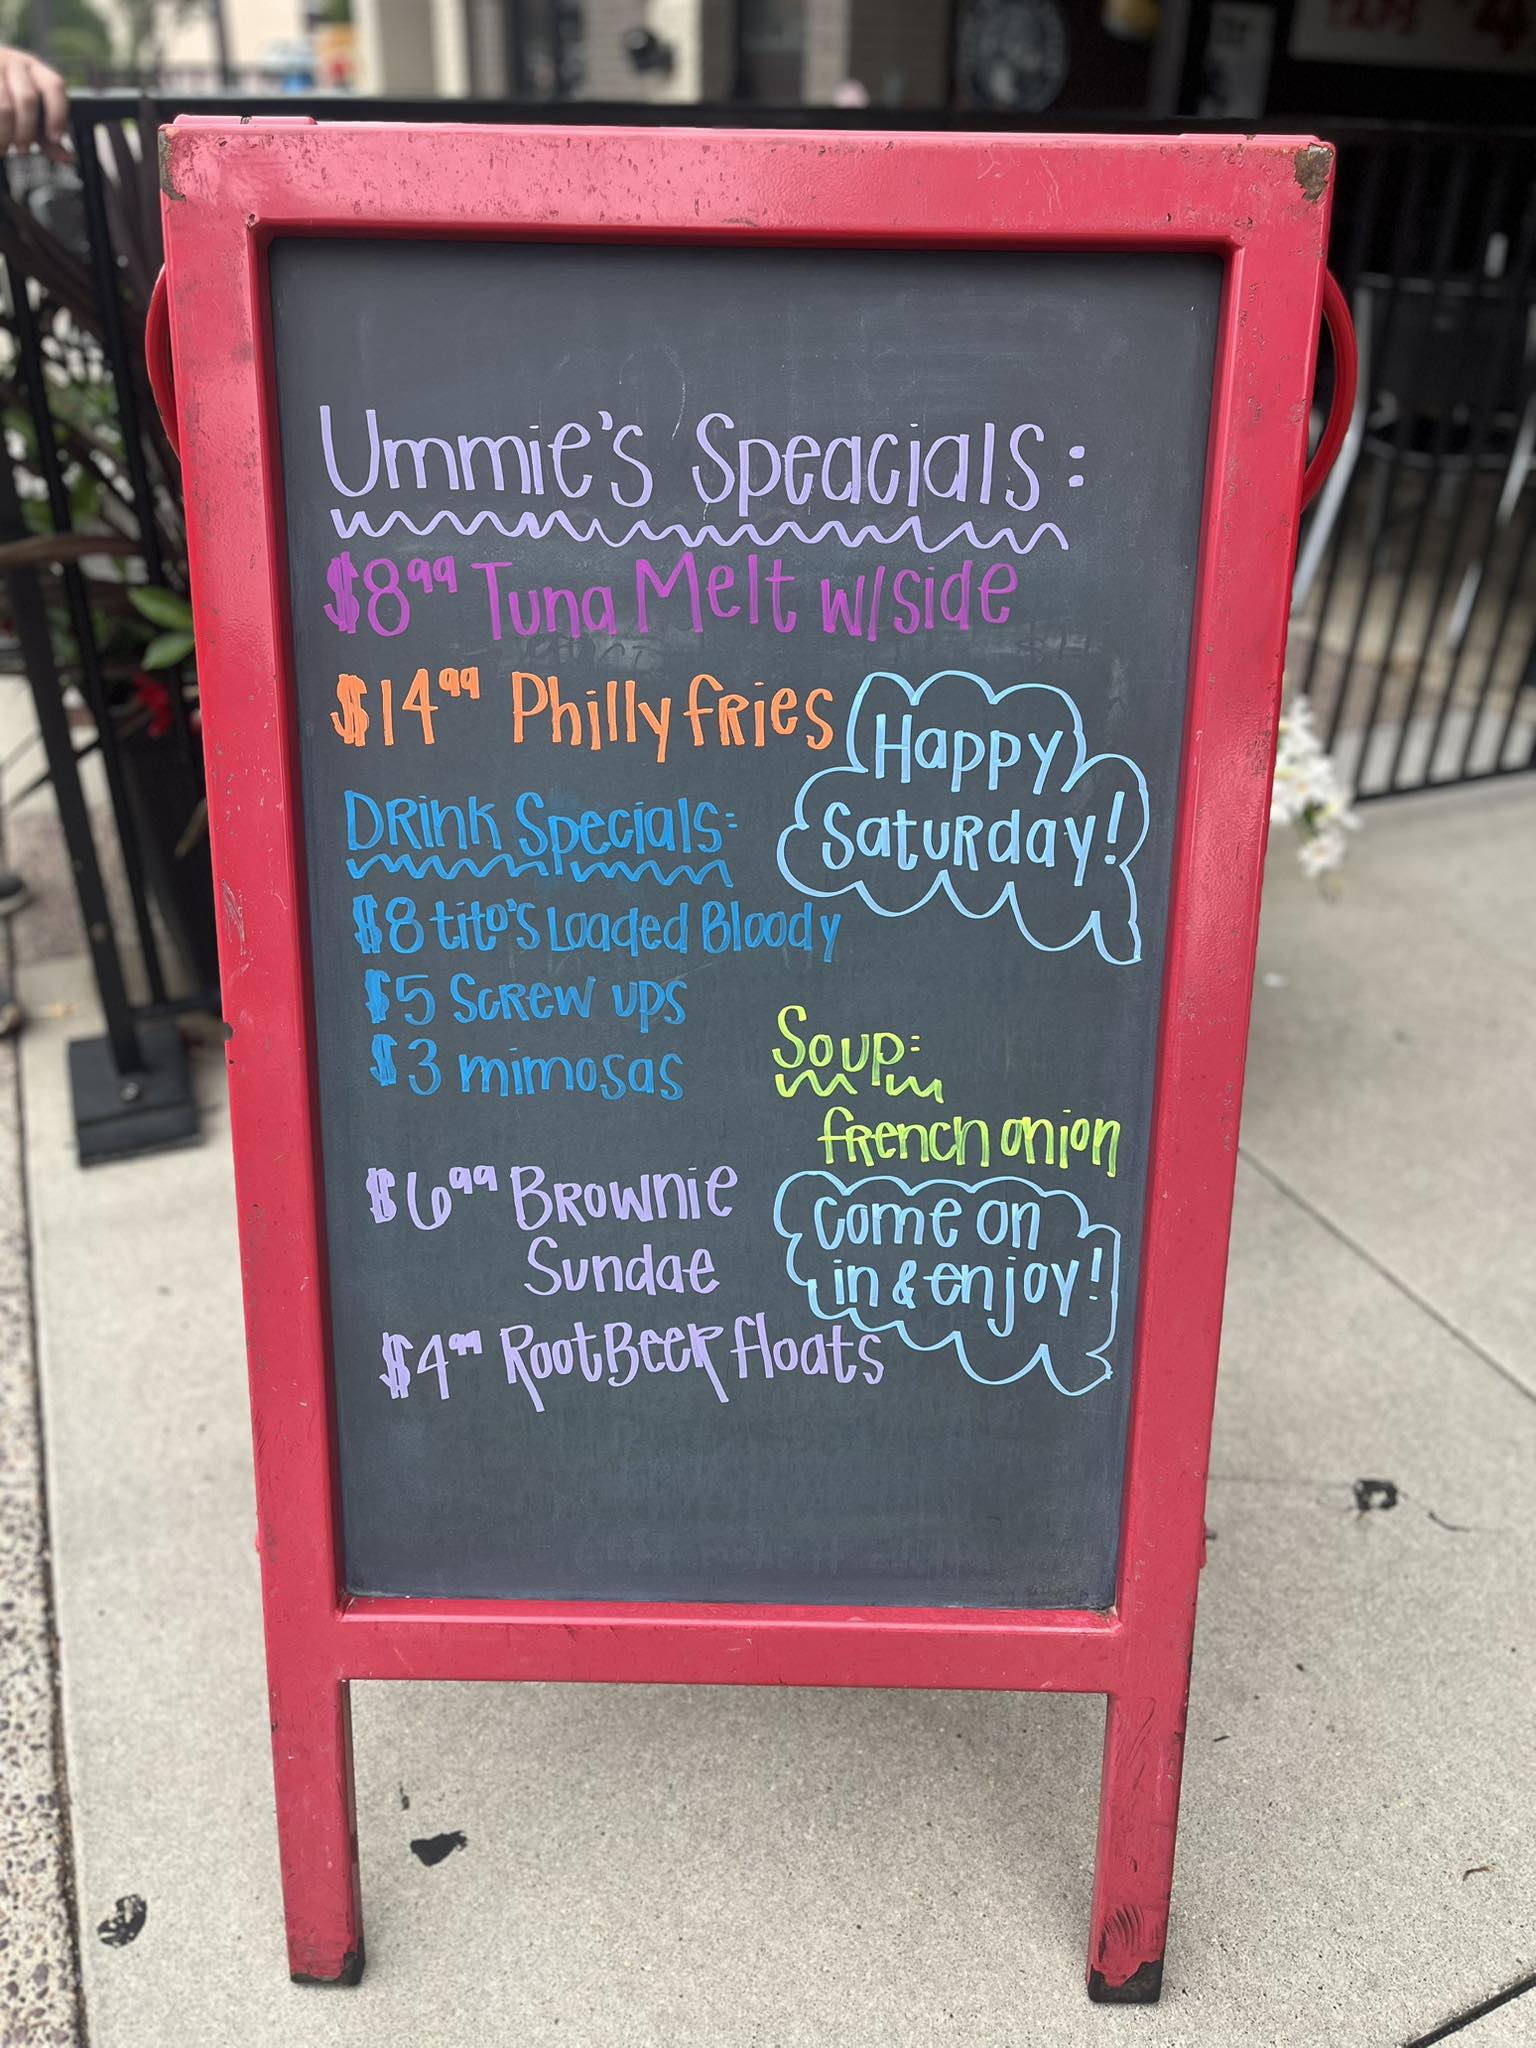 Ummie's Speacials:
$8.99 Tuna Melt w/side
$14.99 Philly fries
Happy
Saturday!
Drink Specials:
$8 tito's Loaded Bloody
$5 Screw ups
$3 mimosas
Soup:
french onion
$6.99 Brownie
Sundae
Come on
in & enjoy!
$4.99 RootBeer floats